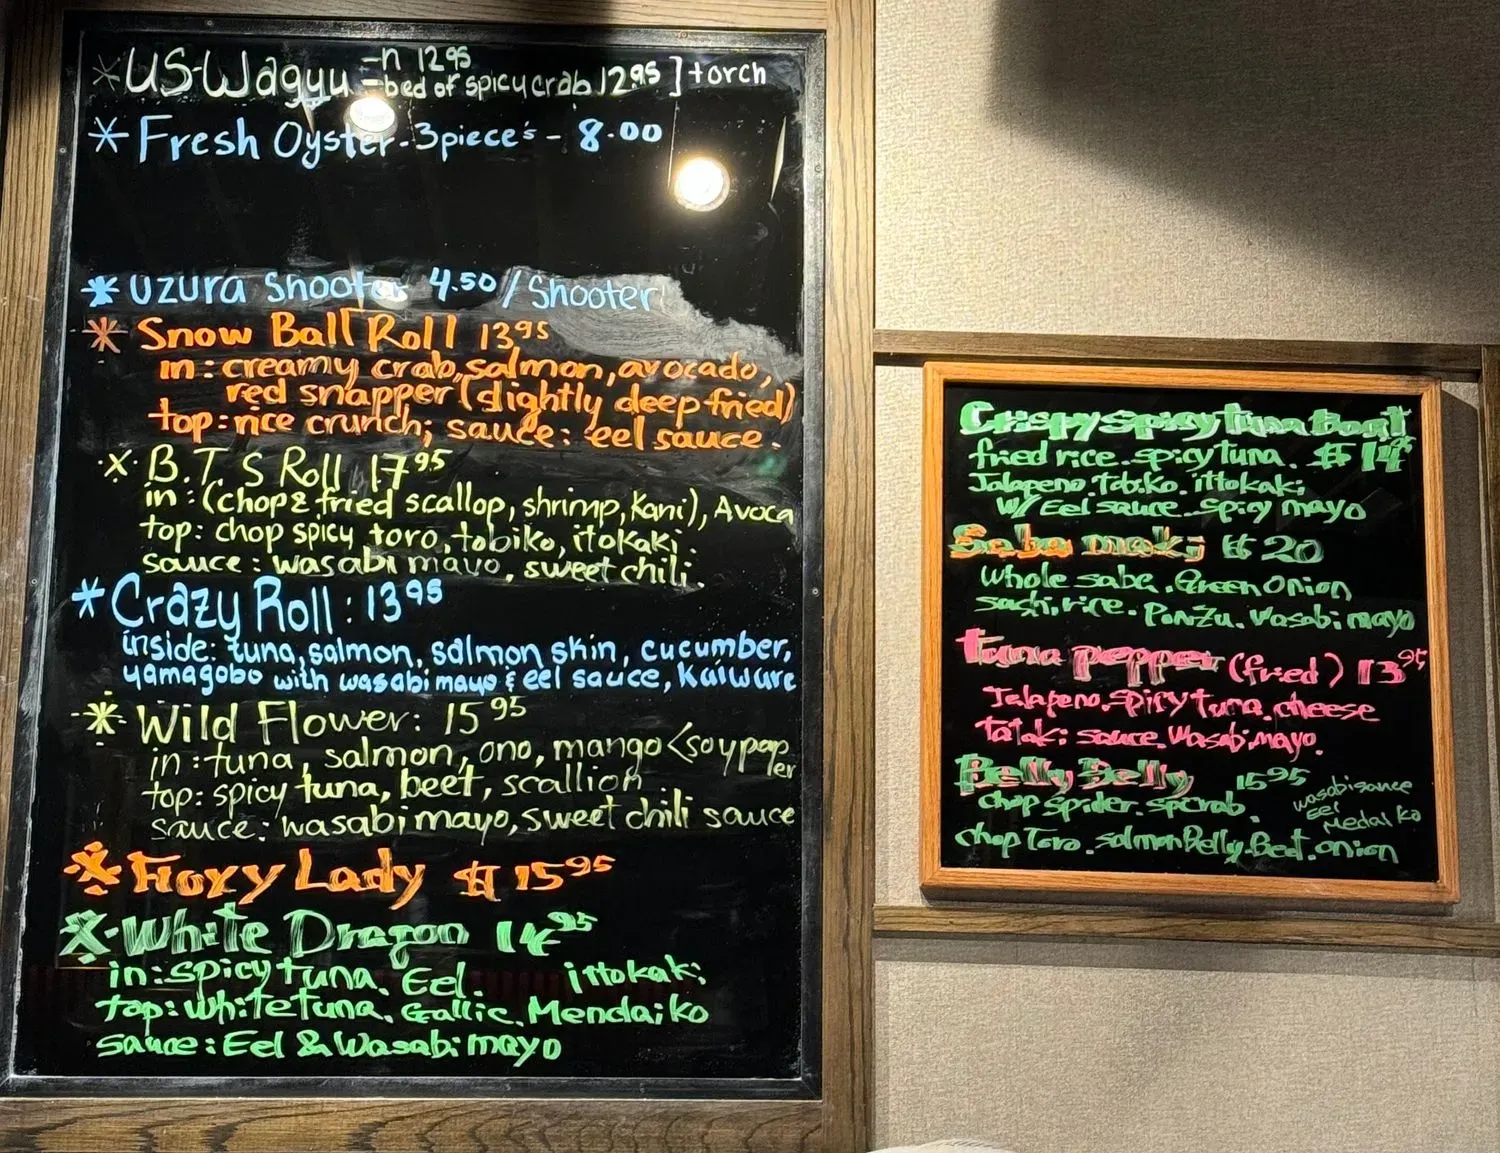 * US-Wagyu -n 12.95
-bed of spicy crab 12.95 ] torch
* Fresh Oyster - 3 piece's - 8.00
* uzura shooter 4.50 / Shooter
* Snow Ball Roll 13.95
in: creamy crab, salmon, avocado,
red snapper (slightly deep fried)
top: rice crunch; sauce: eel sauce.
* B.T.S Roll 17.95
in: (chop & fried scallop, shrimp, Kani), Avoca
top: chop spicy toro, tobiko, itokaki.
sauce: wasabi mayo, sweet chili.
* Crazy Roll: 13.95
inside: tuna, salmon, salmon skin, cucumber,
yamagobo with wasabi mayo & eel sauce, Kaiware
* Wild Flower: 15.95
in: tuna, salmon, ono, mango <soypap
er
top: spicy tuna, beet, scallion.
sauce: wasabi mayo, sweet chili sauce
* Foxy Lady $ 15.95
* White Dragon 14.95
in: spicy tuna. Eel. ittokaki
top: white tuna. Gallic. Mendaiko
sauce: Eel & Wasabi mayo
Crispy spicy tuna Boat
fried rice. spicy tuna. $ 14.95
Jalapeno. tobiko. ittokaki
w/ Eel sauce. spicy mayo
Saba maki $ 20
whole saba. Green onion
sushi rice. Ponzu. wasabi mayo
tuna pepper (fried) 13.95
Jalapeno. spicy tuna. cheese
tataki sauce. wasabi mayo.
Belly Belly 15.95
chop spider. spcrab. wasabi sauce
eel
Medaiko
chop Toro. salmon Belly. Beet. onion